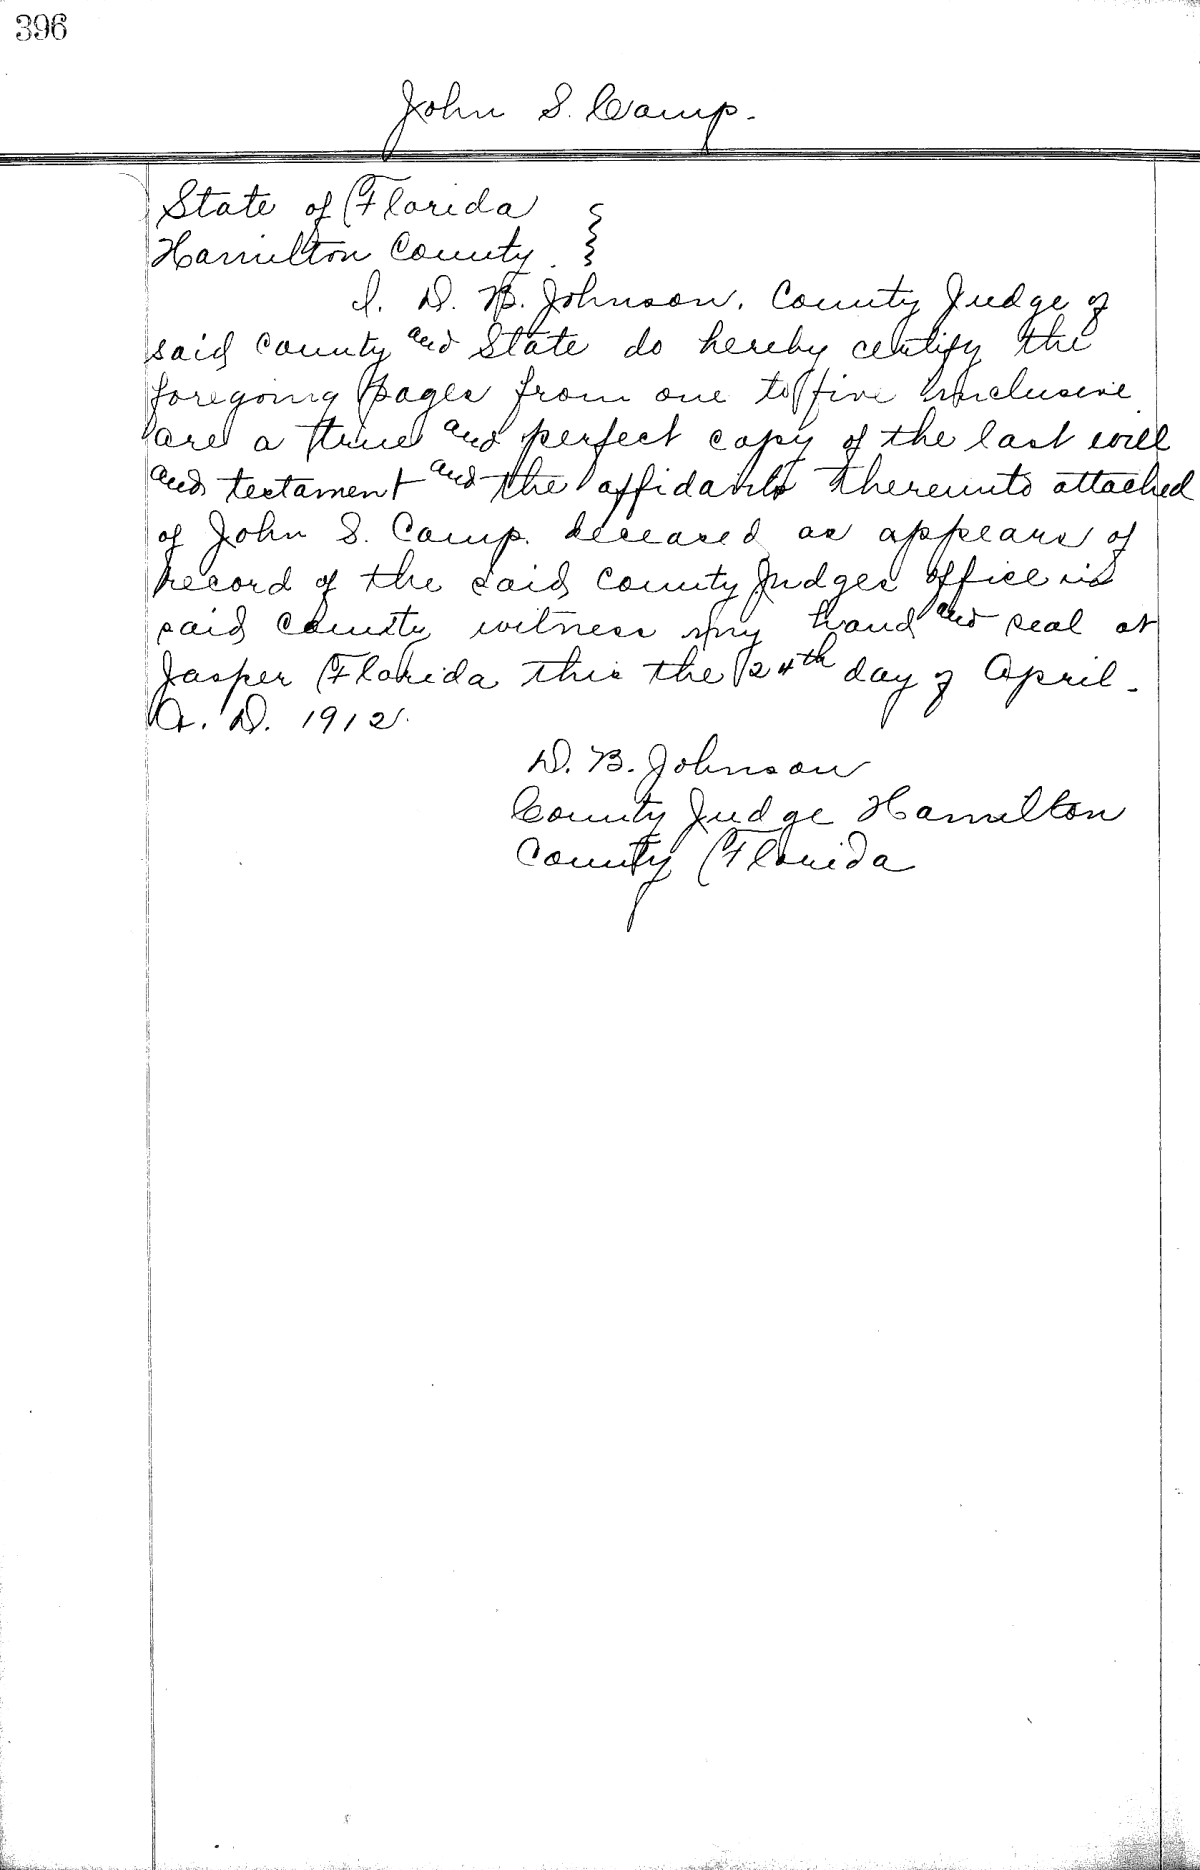 396
John S. Camp.
State of Florida
Hamilton County.
I. D. B. Johnson. County Judge of
said county and State do hereby certify the
foregoing pages from one to five inclusive
are a true and perfect copy of the last will
and testament and the affidavits thereunto attached
of John S. Camp. deceased as appears of
record of the said County Judges office in
said county witness my hand and seal at
Jasper Florida this the 24th day of April.
A. D. 1912.
D. B. Johnson
County Judge Hamilton
County Florida